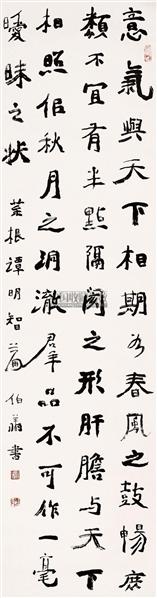 意氣與天下相期如春風之鼓暢庶
類不宜有半點隔閡之形肝膽與天下
相照似秋月之洞澈群品不可作一毫
曖昧之狀 菜根譚明智篇 伯翁書